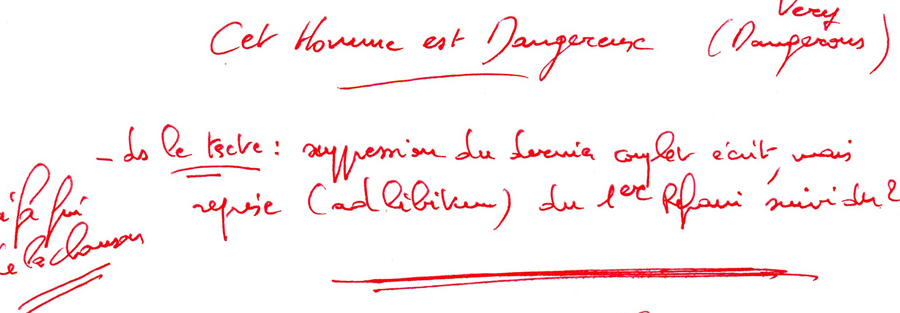 Very
Cet Homme est Dangereux (Dangerous)
- ds le texte : suppression du dernier couplet écrit, mais
reprise (ad libitum) du 1er Refrain suivi du 2
à fin
de la chanson